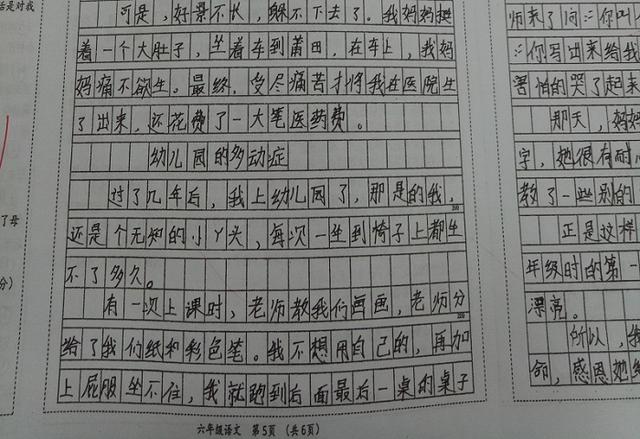 可是，好景不长，躲不下去了。我妈妈挺
着一个大肚子，坐着车到莆田，在车上，我妈
妈痛不欲生。最终，受尽痛苦才将我在医院生
了出来，还花费了一大笔医药费。
幼儿园的多动症
过了几年后，我上幼儿园了，那是的我，
还是个无知的小丫头，每次一坐到椅子上都坐
不了多久。
有一次上课时，老师教我们画画，老师分
给了我们纸和彩色笔。我不想用自己的，再加
上屁股坐不住，我就跑到后面最后一桌的桌子
六年级语文 第5页 （共6页）
师来了问：“你叫
：“你写出来给我
害怕的哭了起来
那天，妈妈
字，她很有耐心
教了一些别的
正是这样
年级时的第一
漂亮。
所以，我
命，感恩她
是对我
了母
分）